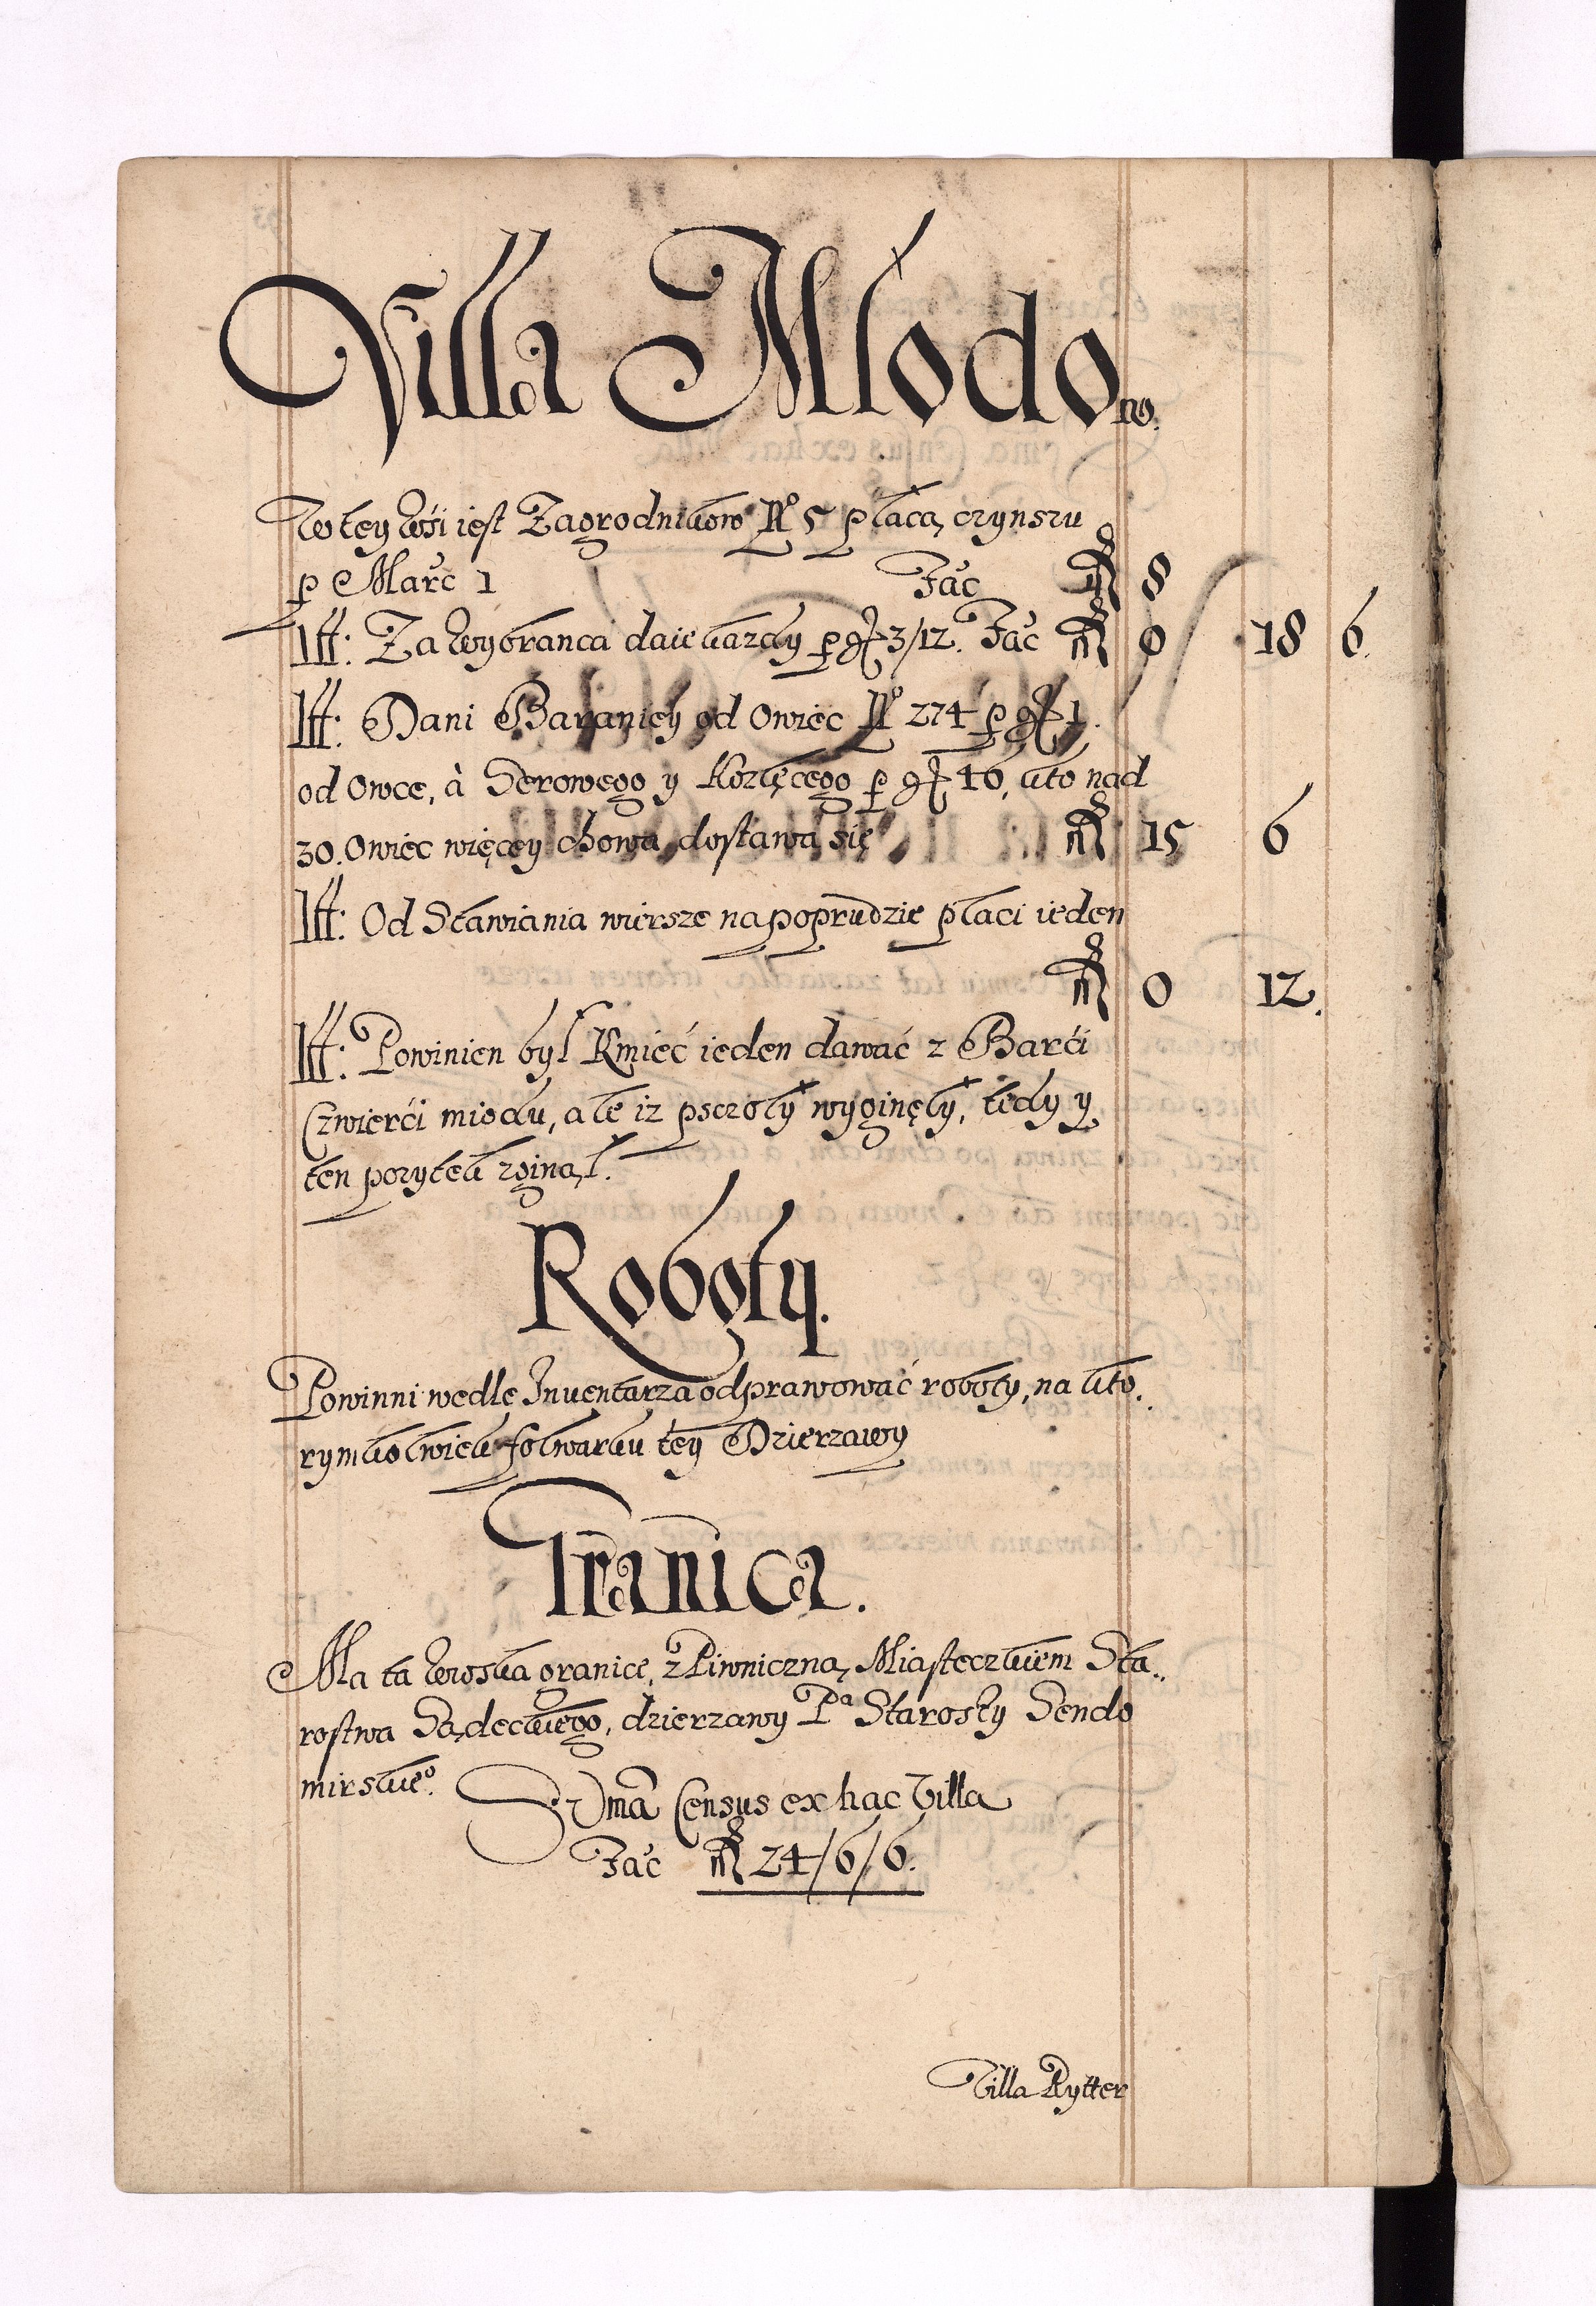 Villa Młodo
w.
W tey wśi iest Zagrodnikow No 5 płacą czynszu
p Marc 1 Fac 8
Itt: Za wybranca daie kazdy p gr 3/12. Fac 0 18 6.
Itt: Dani Baraniey od owiec No 274 p gr 1.
od owce, à Serowego y Kozlęcego p gr 16, kto nad
30. owiec więcey chowa dostawa się 15 6
Itt: Od Stawiania wiersze na poprudzie płaci ieden
0 12.
Itt: Powinien był Kmieć ieden dawać z Barći
Czwierći miodu, ale iz psczoły wyginęły, tedy y
ten pozytek zginął.
Roboty.
Powinni wedle Inuentarza odprawować roboty, na kto.
rymkolwiek folwarku tey Dzierzawy
Granica.
Ma ta wioska granice, z Piwniczną Miasteczkiem Sta.
rostwa Sądeckiego, dzierzawy Pa Starosty Sendo
mirskieo.
Suma Census ex hac Villa
Fac 24/6/6.
Villa Rytter